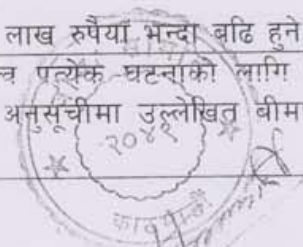 लाख रुपैयाँ भन्दा बढि हुने
च प्रत्येक घटनाको लागि
अनुसूचीमा उल्लेखित बीम
२०४९